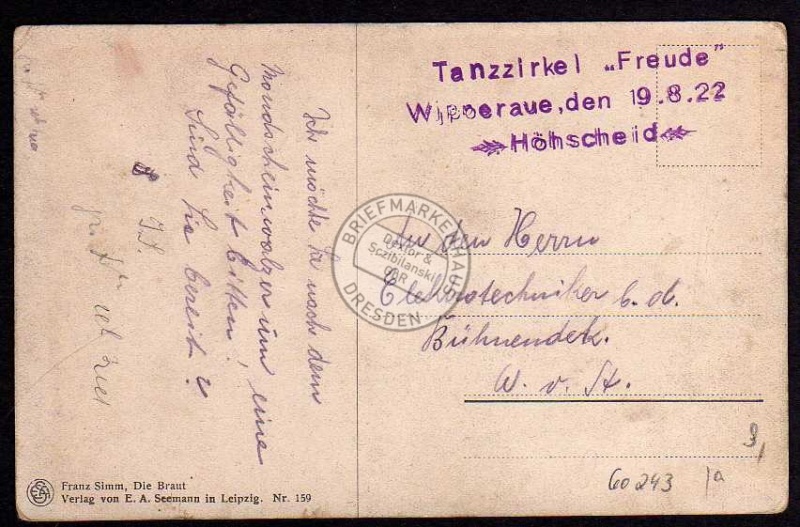 Tanzzirkel „Freude"
Wipperaue, den 19.8.22
Höhscheid
Ich möchte Sie nach dem
Mondscheinwalzer um eine
Gefälligkeit bitten!
Sind Sie bereit?
An den Herrn
Elektrotechniker b. d.
Bühnendek.
W. v. St.
BRIEFMARKENHAUS
Dexior &
Sczibilanski
GbR
DRESDEN
Franz Simm, Die Braut
Verlag von E. A. Seemann in Leipzig. Nr. 159
60243 1a